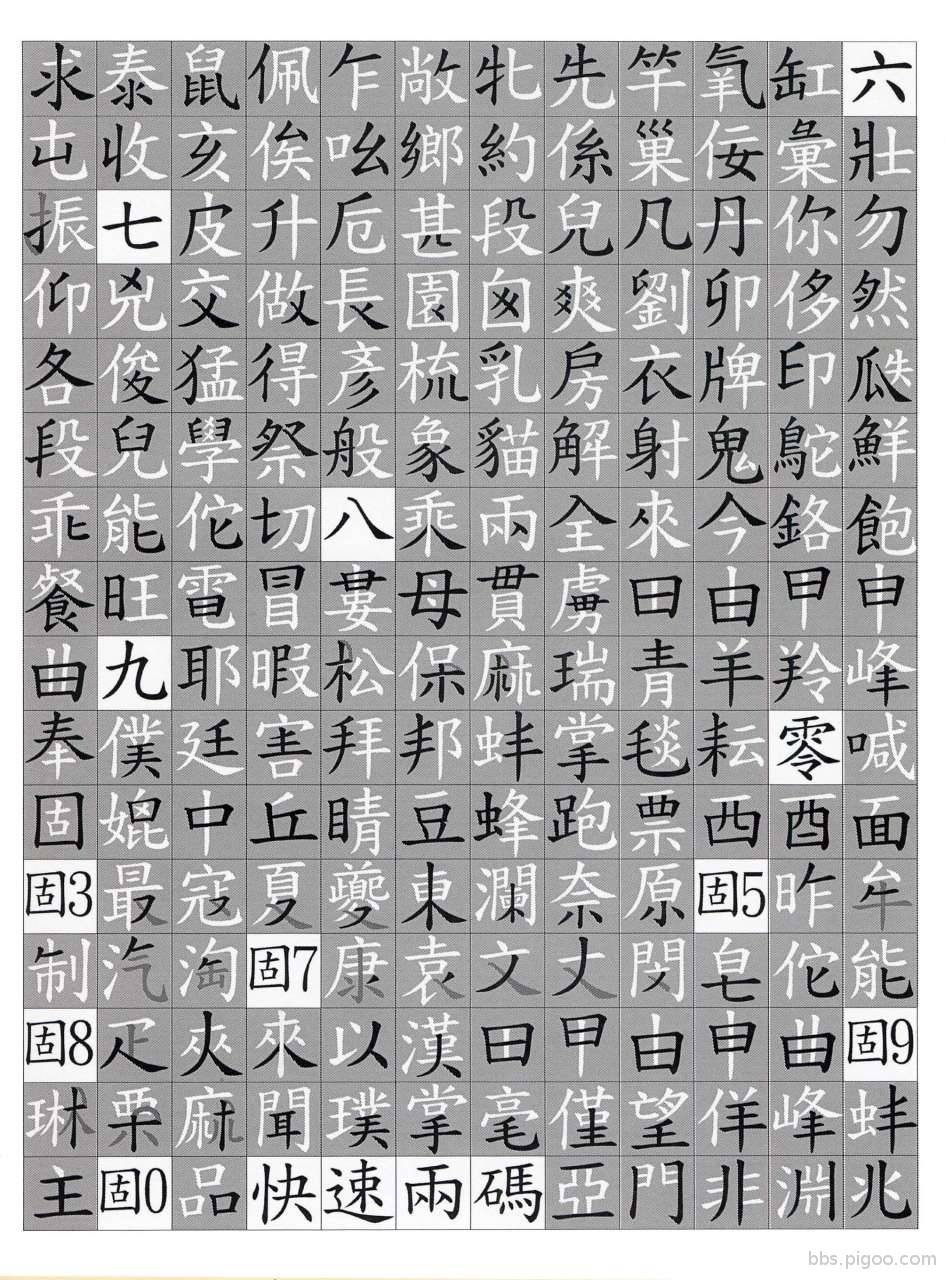 求泰鼠佩乍敞牝先竿氧缸六
屯收亥俟吆鄉約係巢佞彙壯
振七皮升卮甚段兒凡丹你勿
仰兇交做長園囟爽劉卯侈然
各俊猛得彥梳乳房衣牌印瓞
段兒學祭般象貓解射鬼鴕鮮
乖能佗切八乘兩全來今鉻飽
餐旺電冒婁母貫虜曰由甲申
曲九耶暇松保麻瑞青羊羚峰
奉僕廷害拜邦蚌掌毯耘零喊
固媲中丘晴豆蜂跑票西酉面
固3最寇夏夔東瀾奈原固5昨牟
制汽淘固7康袁文丈閔皂佗能
固8疋夾來以漢曰甲由申曲固9
琳栗麻聞璞掌毫僅望佯峰蚌
主固0品快速兩碼亞門非淵兆
bbs.pigoo.com